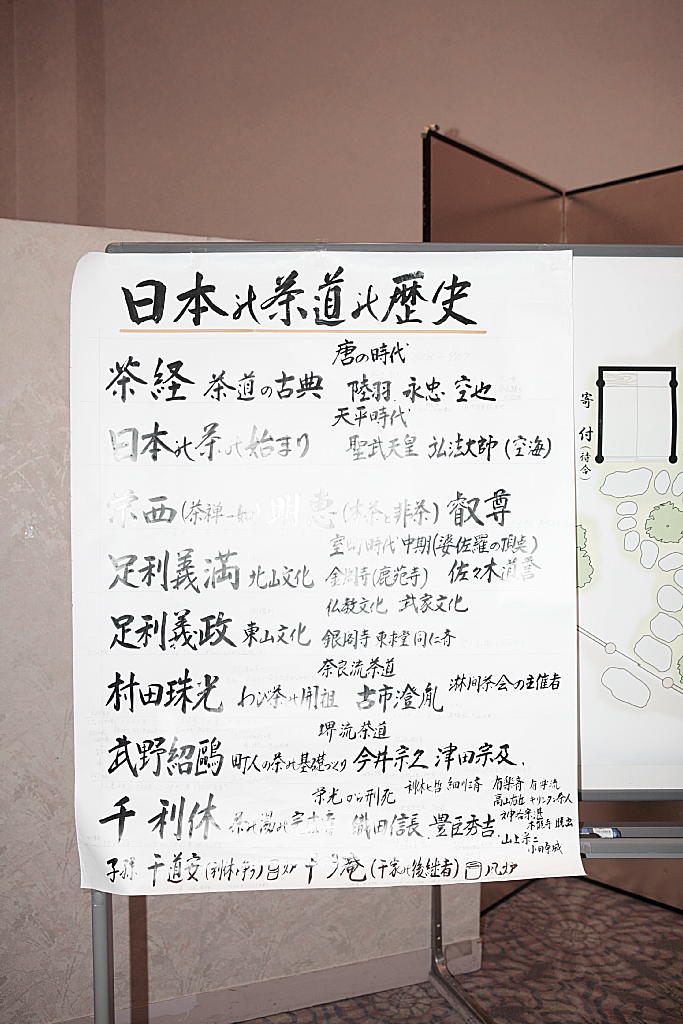 日本の茶道の歴史
唐の時代
茶経 茶道の古典 陸羽 永忠 空也
天平時代
日本の茶の始まり 聖武天皇 弘法大師(空海)
栄西(茶禅一如) 明恵(本茶と非茶) 叡尊
室町時代中期(婆佐羅の頂点)
足利義満 北山文化 金閣寺(鹿苑寺) 佐々木道誉
仏教文化 武家文化
足利義政 東山文化 銀閣寺 東求堂 同仁斉
奈良流茶道
村田珠光 わび茶の開祖 古市澄胤 淋間茶会の主催者
堺流茶道
武野紹鷗 町人の茶の基礎づくり 今井宗久 津田宗及
栄光から刑死 利休七哲 細川三斉 有楽斉 有楽流
高山右近 キリシタン茶人
千利休 茶の湯の 織田信長 豊臣秀吉
神谷宗湛
本能寺 脱出
山上宗二
小田原城
子孫 千道安 (千家の後継者)
寄付(待合)